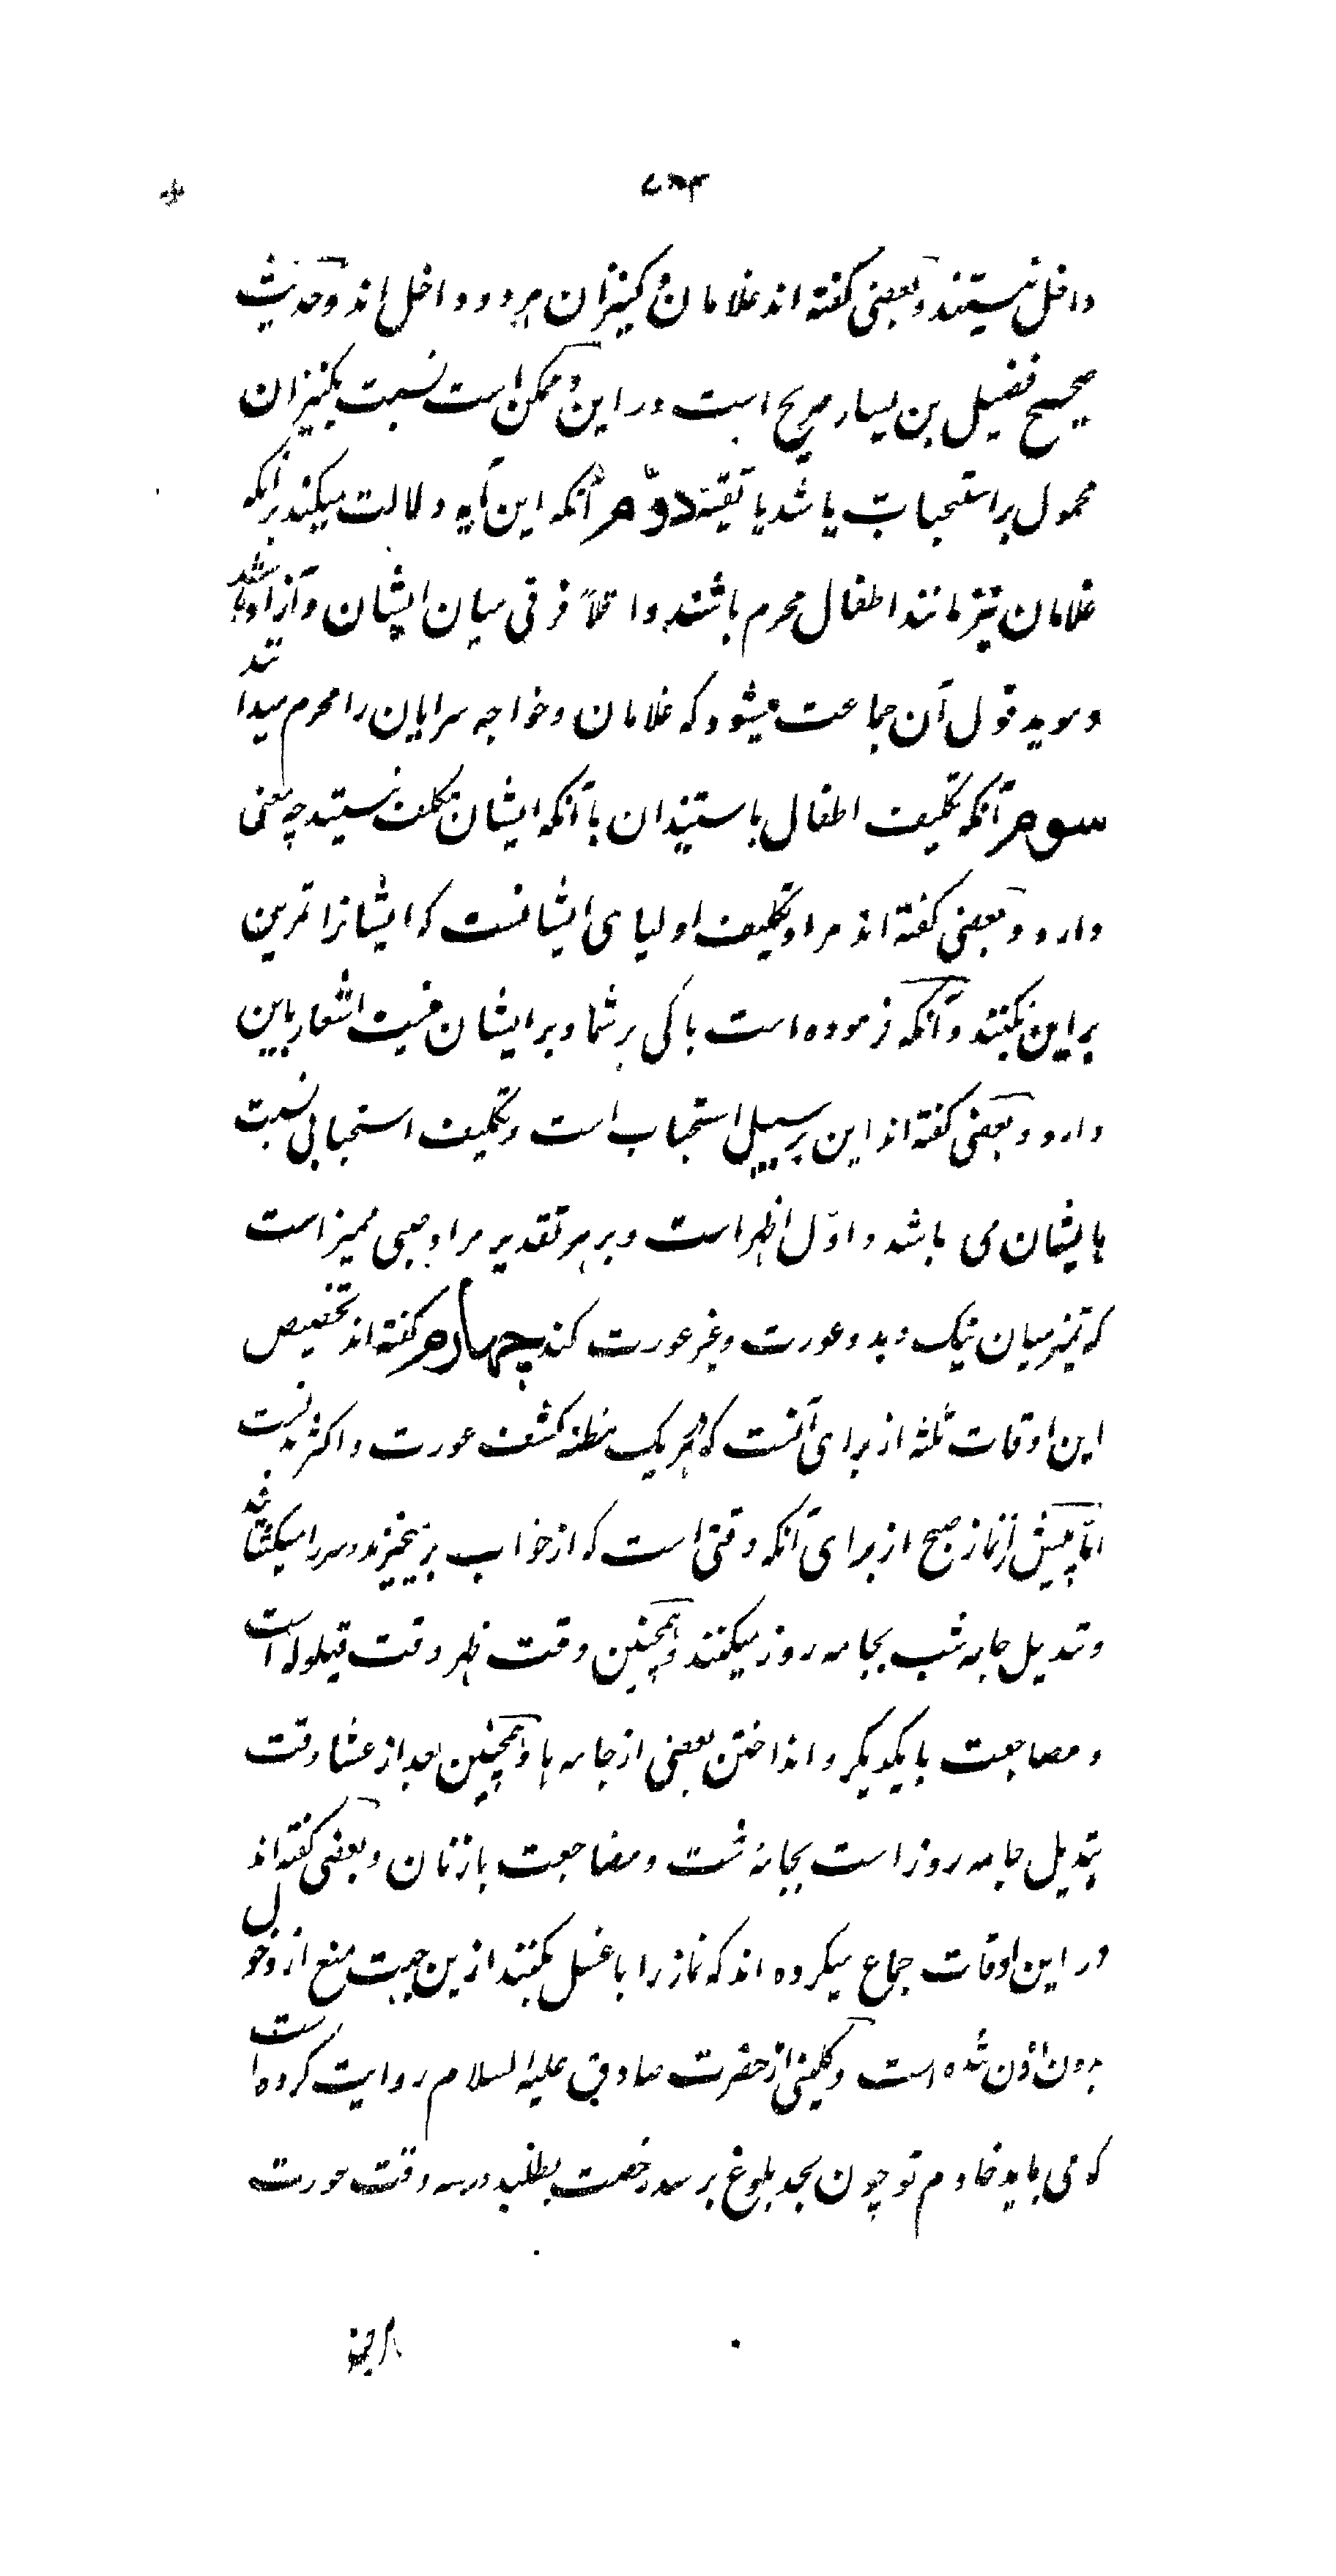 داخل نیستند و بعضی گفته اند غلامان و کنیزان هر دو داخل اند و حدیث
صحیح فضیل بن یسار صریح است در این و ممکن است نسبت بکنیزان
محمول بر استحباب باشد یا تقیه دوّم آنکه این آیه دلالت میکند بر آنکه
غلامان نیز مانند اطفال محرم باشند و اقلاً فرقی میان ایشان و آزاد باشد
و موید قول آن جماعت میشود که غلامان و خواجه سرایان را محرم میدانند
سوم آنکه تکلیف اطفال باستیذان با آنکه ایشان مکلف نیستند چه معنی
دارد و بعضی گفته اند مراد تکلیف اولیای ایشانست که ایشانرا تمرین
بر این بکنند و آنکه فرموده است باکی بر شما و بر ایشان نیست اشعار باین
دارد و بعضی گفته اند این بر سبیل استحباب است و تکلیف استحبابی نسبت
بایشان می باشد و اوّل اظهر است و بر هر تقدیر مراد صبی ممیز است
که تمیز میان نیک و بد و عورت و غیر عورت کند چهارم گفته اند تخصیص
این اوقات ثلثه از برای آنست که هر یک مظنه کشف عورت و اکثر بدنست
امّا پیش از نماز صبح از برای آنکه وقتی است که از خواب بر میخیزند و سر را میگشایند
و تبدیل جامه شب بجامه روز میکنند و همچنین وقت ظهر وقت قیلوله است
و مصاجعت با یکدیگر و انداختن بعضی از جامه ها و همچنین بعد از عشا وقت
تبدیل جامه روز است بجامه شب و مضاجعت با زنان و بعضی گفته اند
در این اوقات جماع میکرده اند که نماز را با غسل بکنند ازین جهت منع از دخول
بدون اذن شده است و کلینی از حضرت صادق علیه السلام روایت کرده است
که می باید خادم تو چون بحد بلوغ برسد رخصت بطلبد در سه وقت عورت